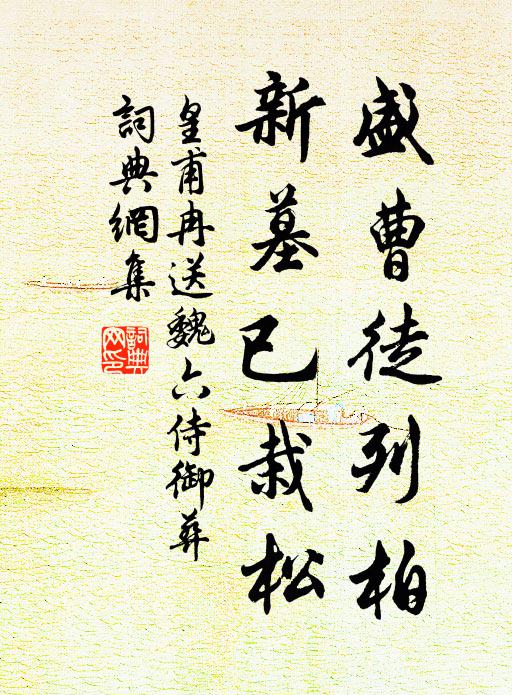 盛曹徒列柏
新墓已栽松
皇甫冉送魏六侍御葬
詞典網集
詞典網印